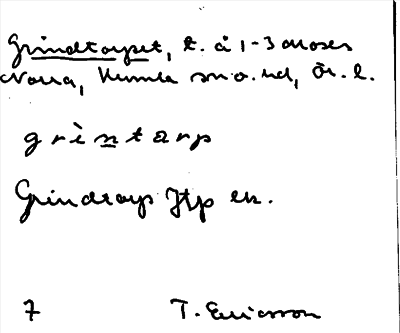 Grindtorpet, t. å 1-3 Moses
Norra, Kumla sn o. hd, Ör. l.
grìntărp
Grindtorp Jtp ek.
7 T. Ericsson